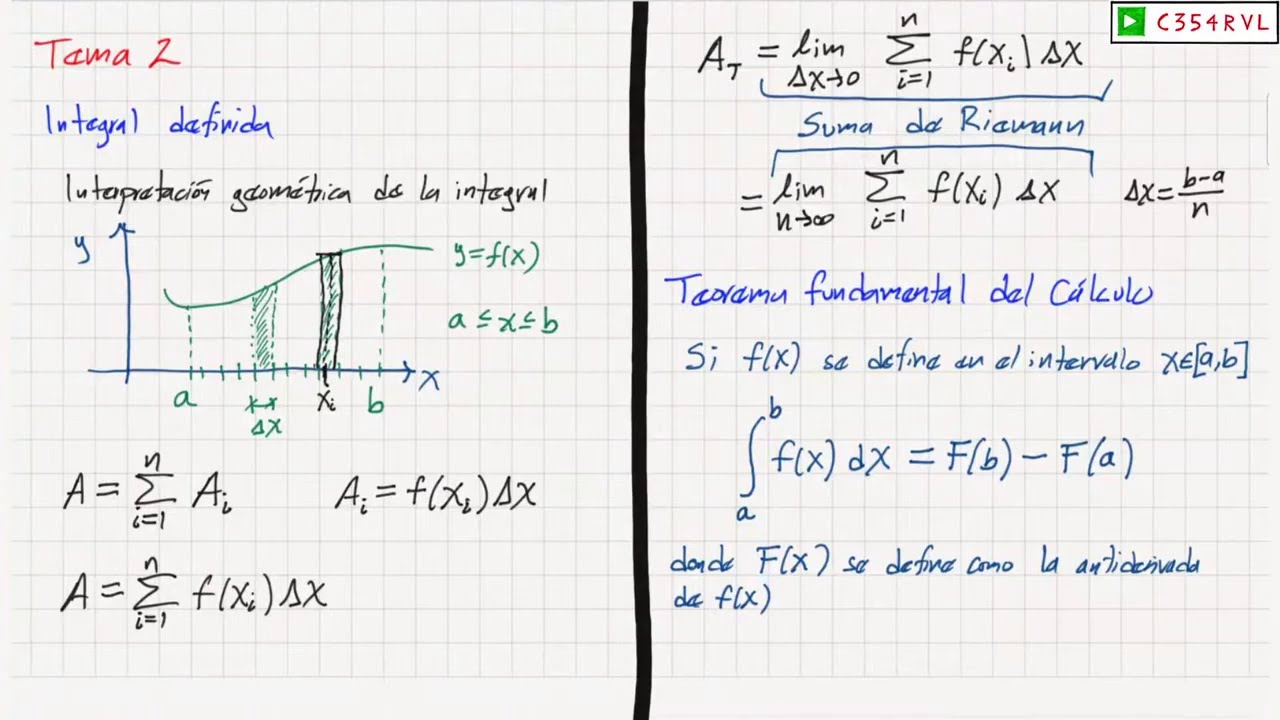 Tema 2
Integral definida
Interpretación geométrica de la integral
y
y=f(x)
a ≤ x ≤ b
x
a
Δx
xi
b
A = Σ_{i=1}^{n} A_i
A_i = f(x_i) Δx
A = Σ_{i=1}^{n} f(x_i) Δx
C354RVL
A_T = lim_{Δx→0} Σ_{i=1}^{n} f(x_i) Δx
Suma de Riemann
= lim_{n→∞} Σ_{i=1}^{n} f(x_i) Δx
Δx = (b-a)/n
Teorema fundamental del Cálculo
Si f(x) se define en el intervalo x∈[a,b]
∫_a^b f(x) dx = F(b) - F(a)
donde F(x) se define como la antiderivada
de f(x)